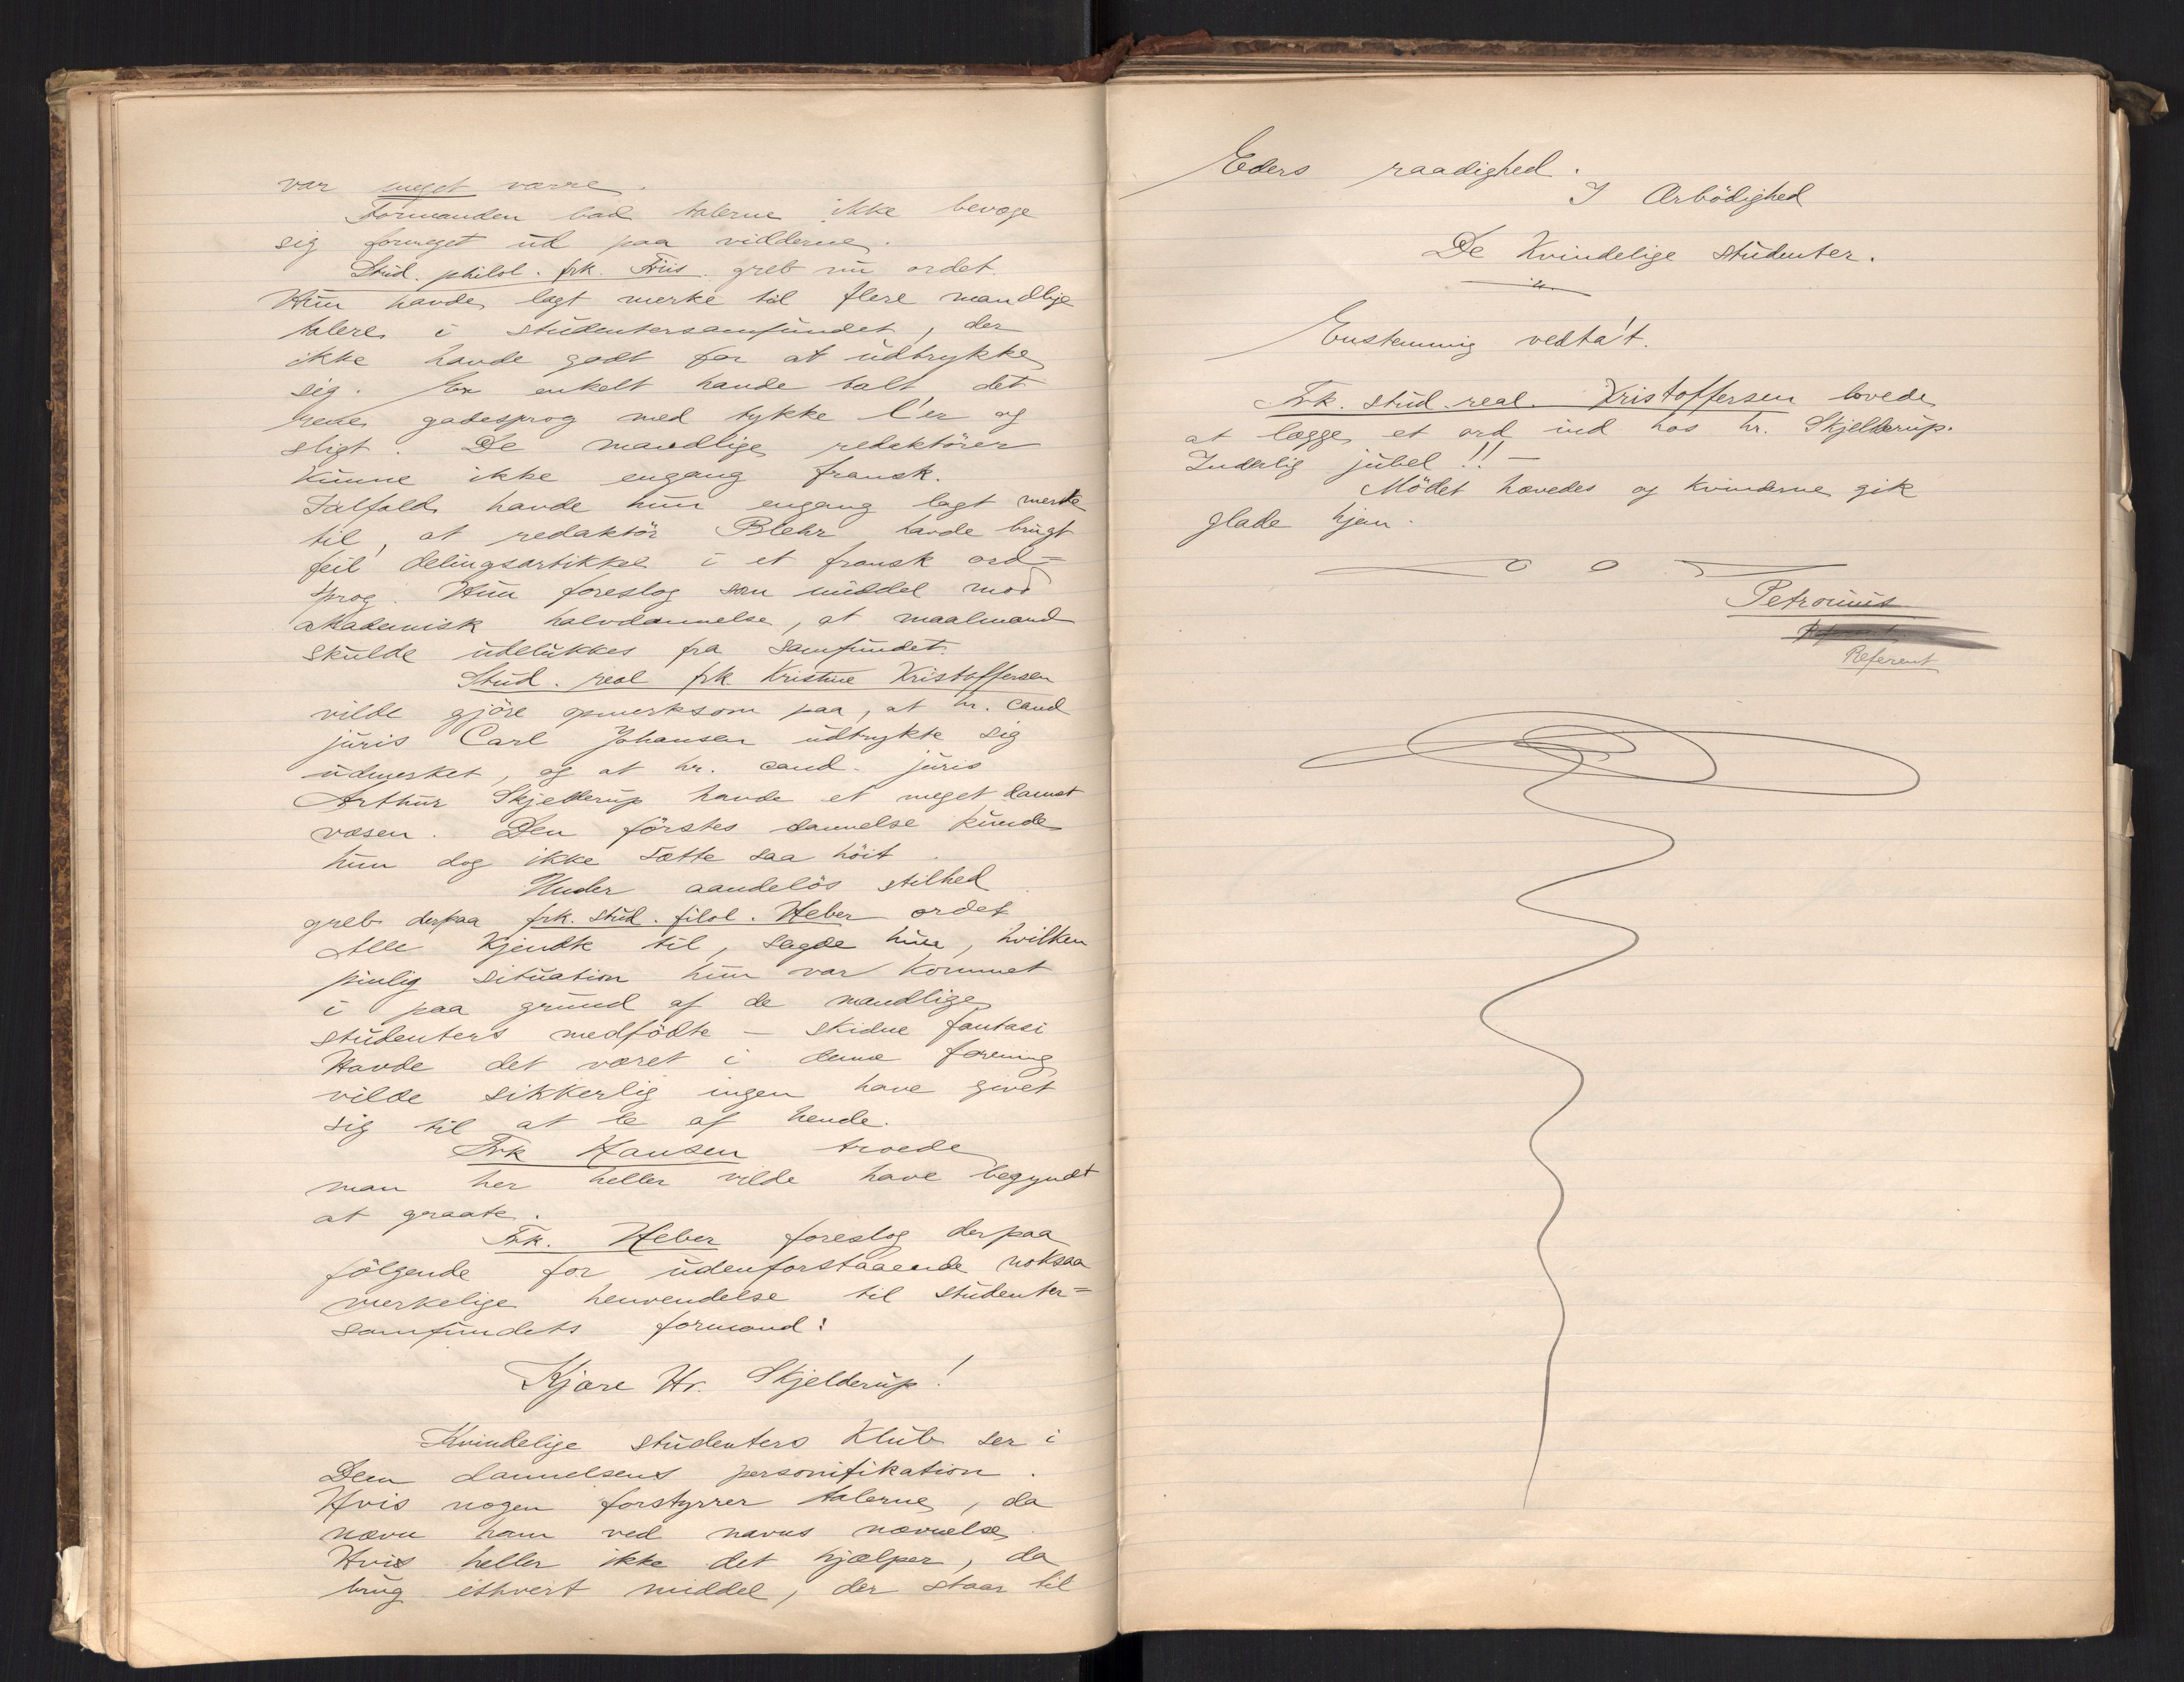 var meget værre.
Formanden bad talerne ikke bevæge
sig formeget ud paa vidderne.
Stud. philol. frk. Friis greb nu ordet.
Hun havde lagt merke til flere mandlige
talere i studentersamfundet, der
ikke havde godt for at udtrykke
sig. En enkelt havde talt det
rene gadesprog med tykke l'er og
sligt. De mandlige redaktörer
kunne ikke engang fransk.
Ialfald havde hun engang lagt merke
til, at redaktör Blehr havde brugt
feil delingsartikkel i et fransk ord=
sprog. Hun foreslog som middel mod
akademisk halvdannelse, at maalmænd
skulde udelukkes fra samfundet.
Stud. real frk Kristine Kristoffersen
vilde gjöre opmerksom paa, at hr. cand
juris Carl Johansen udtrykte sig
udmerket, og at hr. cand. juris
Arthur Skjelderup havde et meget dannet
væsen. Den förstes dannelse kunde
hun dog ikke sætte saa höit.
Under aandelös stilhed
greb derpaa frk. stud. filol. Heber ordet
Alle kjendte til, sagde hun, hvilken
pinlig situation hun var kommet
i paa grund af de mandlige
studenters medfödte – skidne fantasi
Havde det været i denne forening
vilde sikkerlig ingen have givet
sig til at le af hende.
Frk Hansen troede
man her heller vilde have begyndt
at graate.
Frk. Heber foreslog derpaa
fölgende for udenforstaaende noksaa
merkelige henvendelse til studenter=
samfundets formand:
Kjære Hr. Skjelderup!
Kvindelige studenters Klub ser i
Dem dannelsens personifikation.
Hvis nogen forstyrrer talerne, da
nævn ham ved navns nævnelse.
Hvis heller ikke det hjælper, da
brug ethvert middel, der staar til
Eders raadighed.
I Ærbödighed
De Kvindelige studenter.
Enstemmig vedta't.
Frk. stud. real. Kristoffersen lovede
at lægge et ord ind hos hr. Skjelderup.
Inderlig jubel!! –
Mödet hævedes og kvinderne gik
glade hjem.
Petronius
Referent